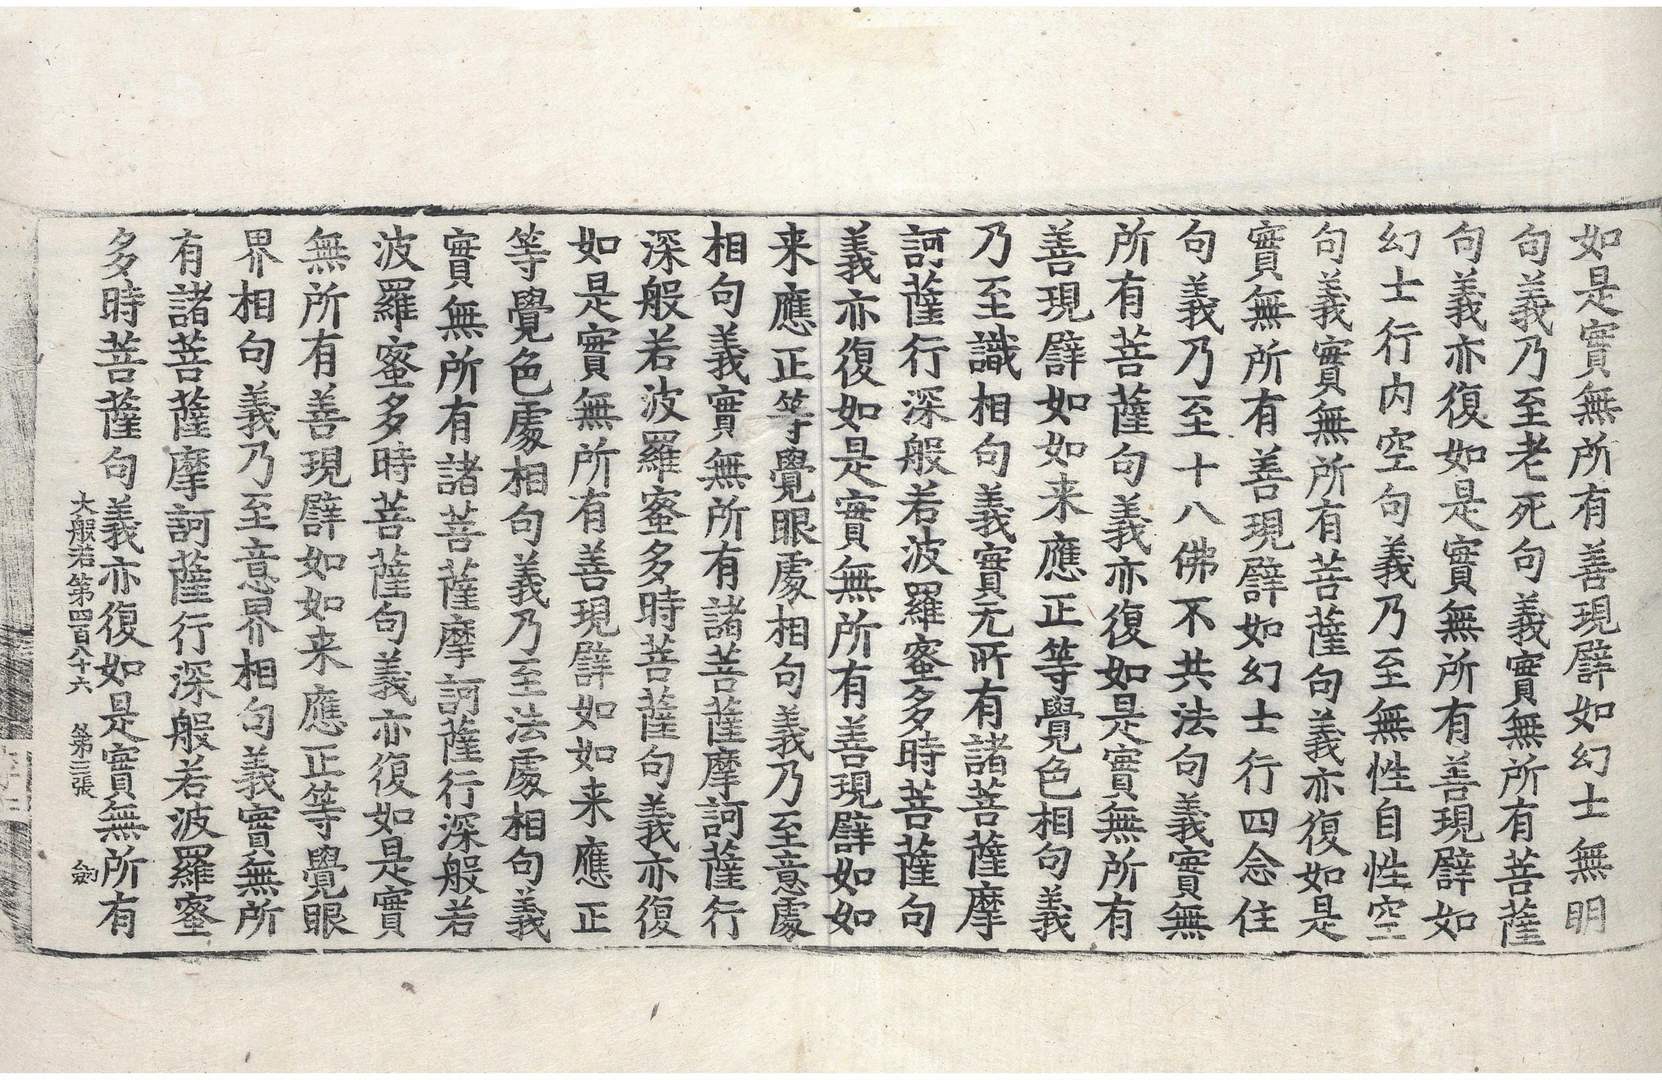 如是實無所有善現譬如幻士無明
句義乃至老死句義實無所有菩薩
句義亦復如是實無所有善現譬如
幻士行内空句義乃至無性自性空
句義實無所有菩薩句義亦復如是
實無所有善現譬如幻士行四念住
句義乃至十八佛不共法句義實無
所有菩薩句義亦復如是實無所有
善現譬如如来應正等覺色相句義
乃至識相句義實无所有諸菩薩摩
訶薩行深般若波羅蜜多時菩薩句
義亦復如是實無所有善現譬如如
来應正等覺眼處相句義乃至意處
相句義實無所有諸菩薩摩訶薩行
深般若波羅蜜多時菩薩句義亦復
如是實無所有善現譬如如来應正
等覺色處相句義乃至法處相句義
實無所有諸菩薩摩訶薩行深般若
波羅蜜多時菩薩句義亦復如是實
無所有善現譬如如来應正等覺眼
界相句義乃至意界相句義實無所
有諸菩薩摩訶薩行深般若波羅蜜
多時菩薩句義亦復如是實無所有
大般若第四百八十六 第三張 劒